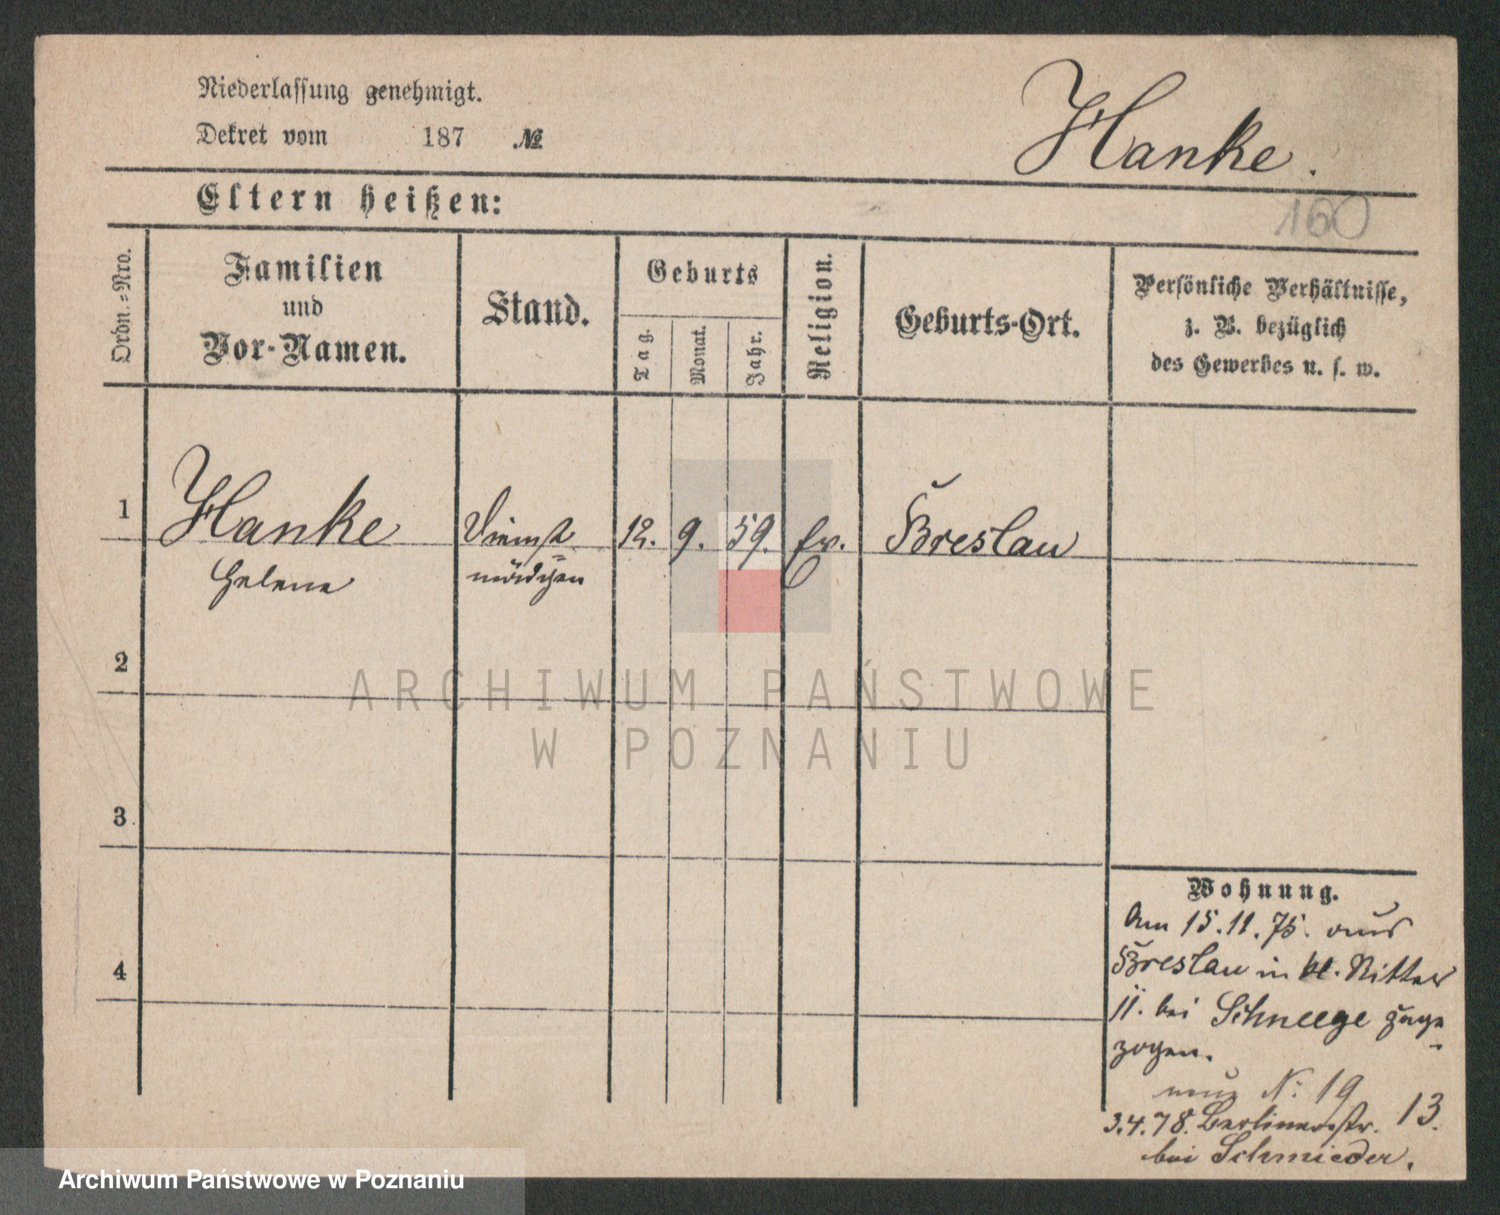 Niederlassung genehmigt.
Dekret vom 187 №
Hanke.
160
Eltern heißen:
Ordn.=Nro.
Familien
und
Vor-Namen.
Stand.
Geburts
Tag.
Monat.
Jahr.
Religion.
Geburts-Ort.
Persönliche Verhältnisse,
z. B. bezüglich
des Gewerbes u. s. w.
1
Hanke
Helene
Dienst=
mädchen
12. 9. 59. Ev. Breslau
2
3
4
Wohnung.
Am 15.11.75. aus
Breslau in kl. Ritter
11. bei Schneege zuge=
zogen.
neue N: 19
3.4.78. Berlinerstr. 13.
bei Schmieder.
ARCHIWUM PAŃSTWOWE
W POZNANIU
Archiwum Państwowe w Poznaniu